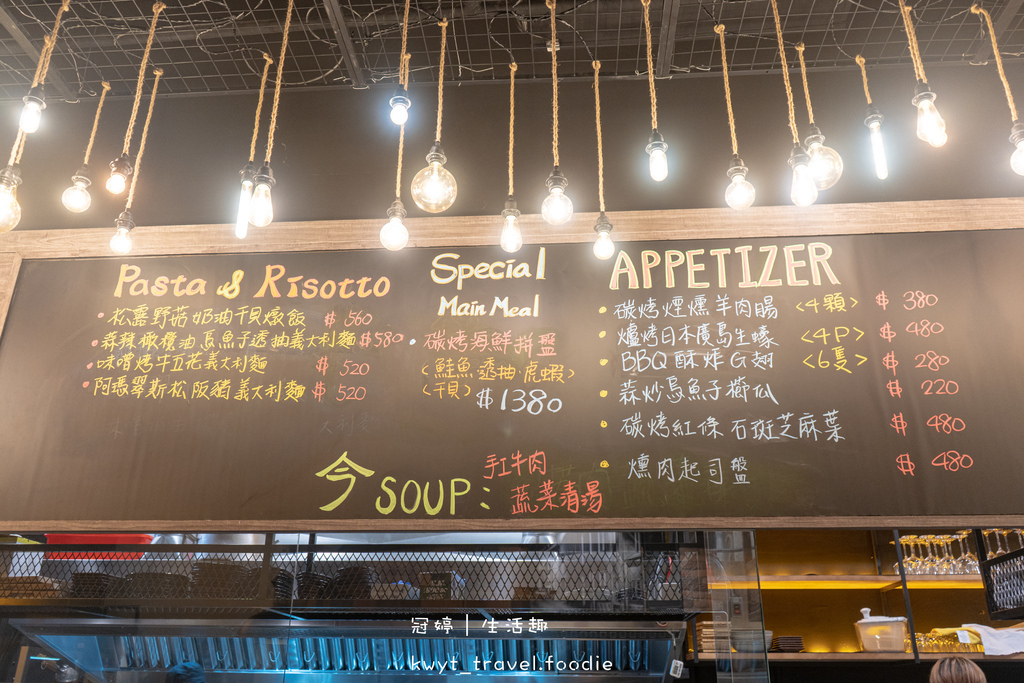 Pasta & Risotto
• 松露野菇奶油干貝燉飯 $560
• 蒜辣橄欖油烏魚子透抽義大利麵 $580
• 味噌烤牛五花義大利麵 $520
• 阿瑪翠斯松阪豬義大利麵 $520
Special
Main Meal
• 碳烤海鮮拼盤
<鮭魚透抽·虎蝦>
<干貝> $1380
APPETIZER
• 碳烤煙燻羊肉腸 <4顆> $380
• 爐烤日本廣島生蠔 <4P> $480
• BBQ酥炸G翅 <6隻> $280
• 蒜炒烏魚子櫛瓜 $220
• 碳烤紅條石斑芝麻葉 $480
• 燻肉起司盤 $480
今SOUP:
紅牛肉
蔬菜清湯
冠婷|生活趣
kwyt_travel.foodie